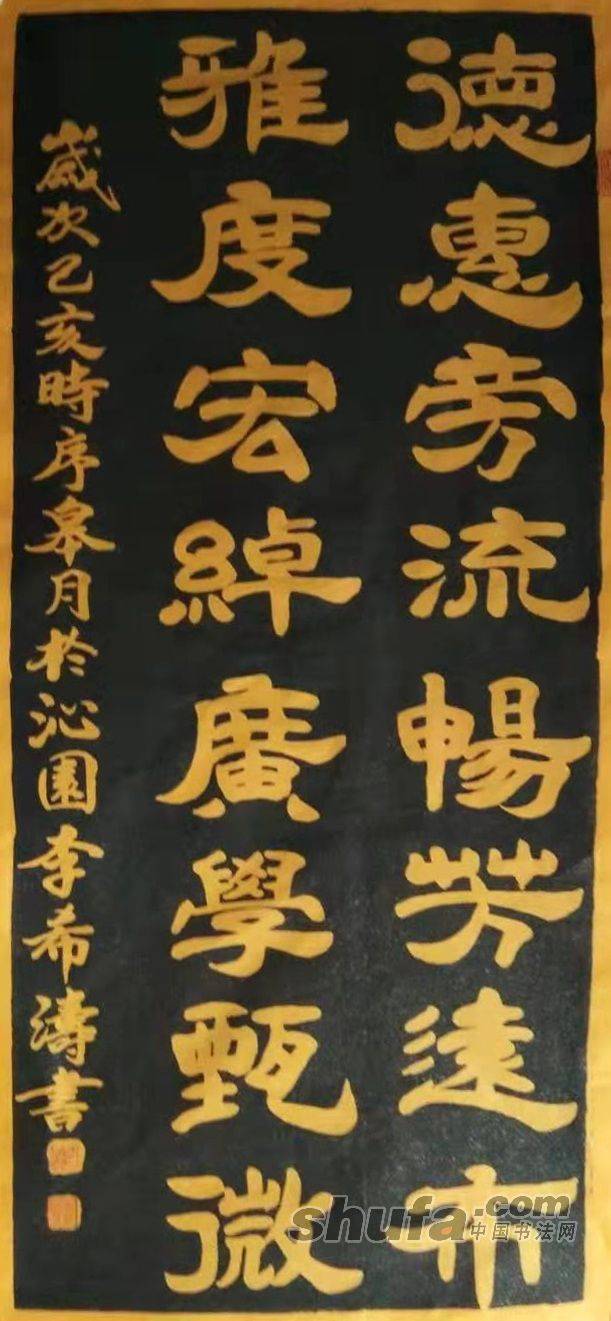 德惠旁流暢芳遠布
雅度宏綽廣學甄微
歲次乙亥時序皋月於沁園李希濤書
shufa.com
中国书法网